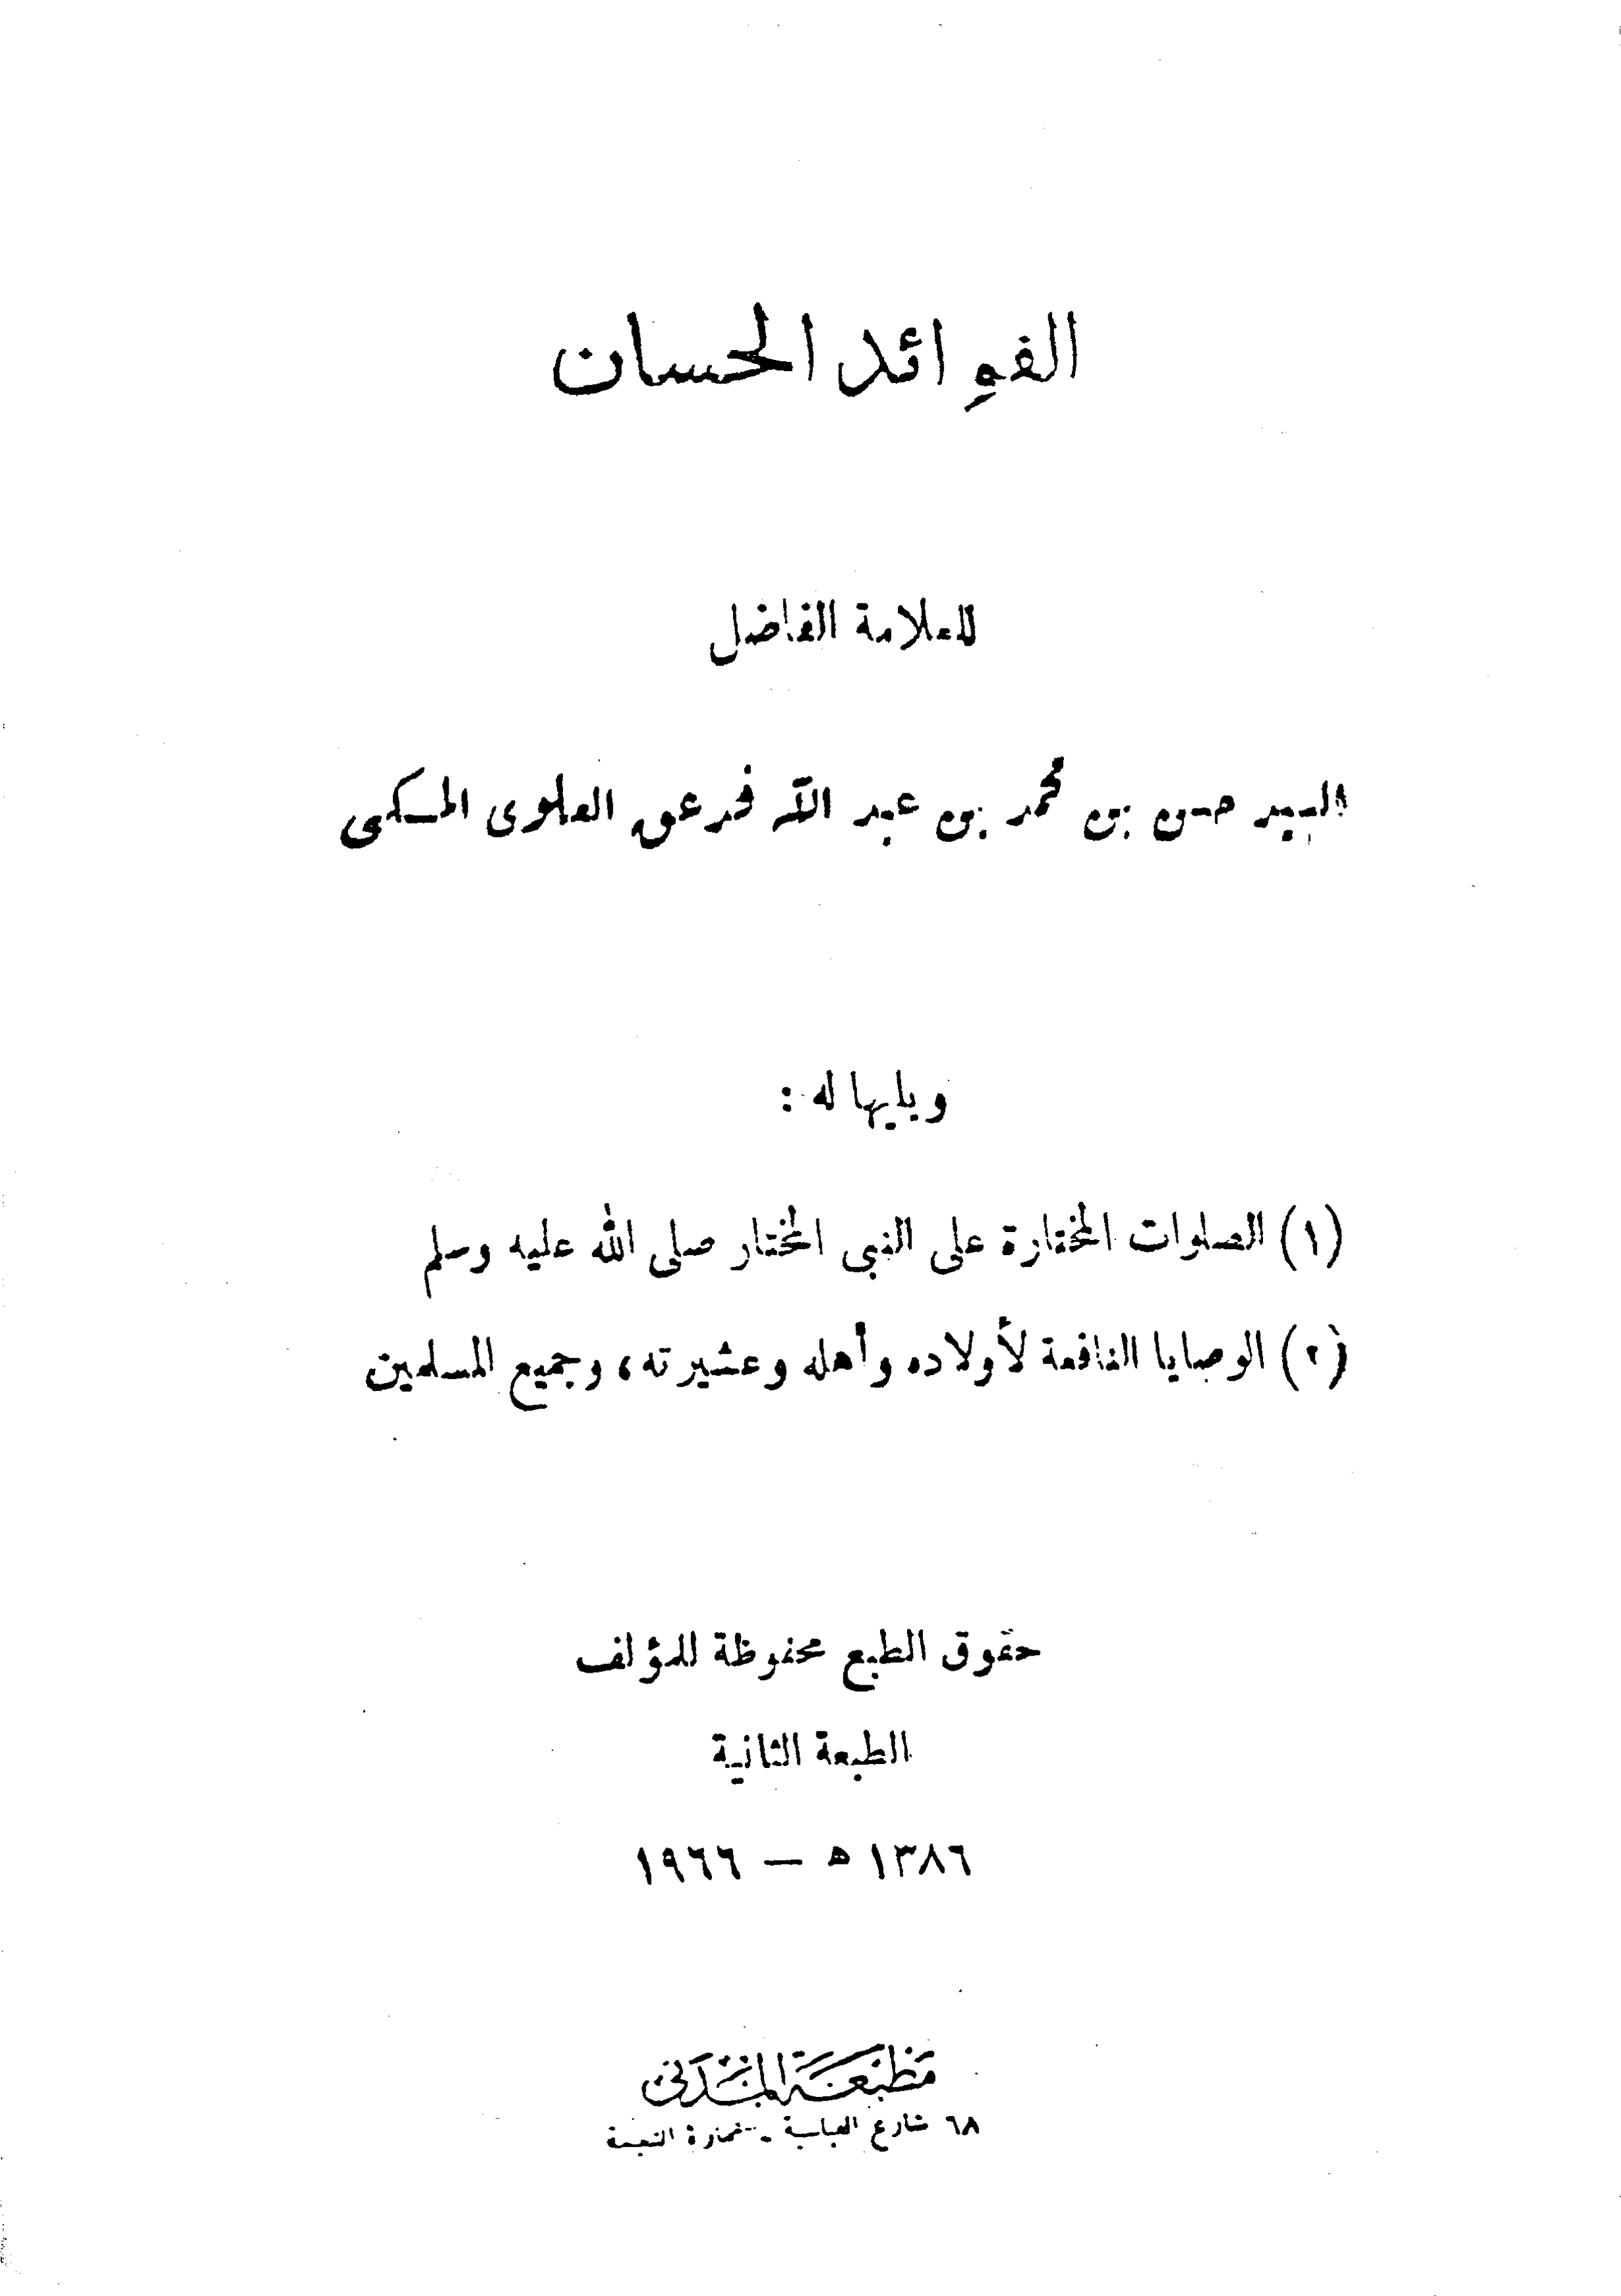 الفوائد الحسان
للعلامة الفاضل
السيد حسن بن محمد بن عبد الله فدعق العلوى المكى
ويليها له :
(١) الصلوات المختارة على النبى المختار صلى الله عليه وسلم
(٢) الوصايا النافعة لأولاده وأهله وعشيرته، وجميع المسلمين
حقوق الطبع محفوظة للمؤلف
الطبعة الثانية
١٣٨٦ ه — ١٩٦٦
مطبعة المدنى
٦٨ شارع العباسية -